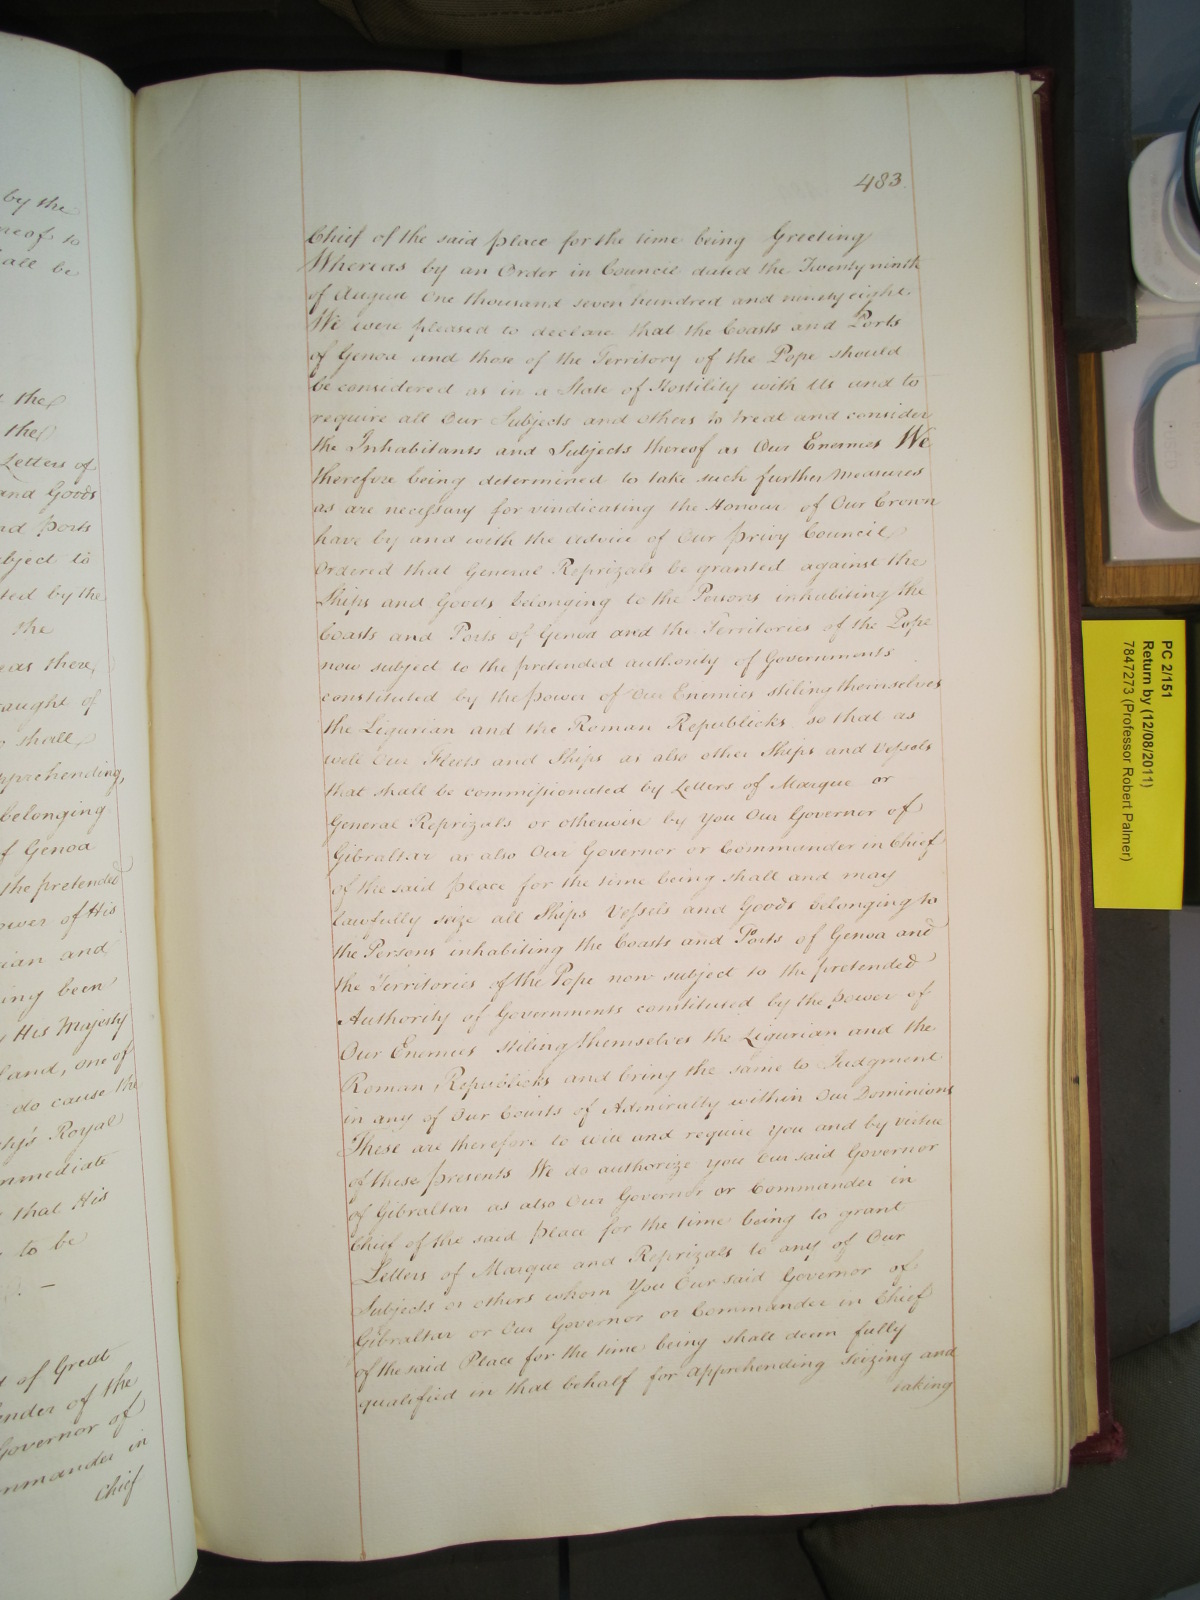 by the
hereof to
all be
the
the
Letters of
and Goods
and Ports
subject to
ted by the
the
eas there
aught of
shall
pprehending,
belonging
f Genoa
the pretended
ower of His
ian and
ing been
His Majesty
land, one of
do cause the
ty's Royal
mmediate
that His
to be
t of Great
ander of the
Governor of
mmander in
Chief
483
Chief of the said place for the time being Greeting
Whereas by an Order in Council dated the Twenty ninth
of August One thousand seven hundred and ninety eight
We were pleased to declare that the Coasts and Ports
of Genoa and those of the Territory of the Pope should
be considered as in a State of Hostility with Us and to
require all Our Subjects and others to treat and consider
the Inhabitants and Subjects thereof as Our Enemies We
therefore being determined to take such further Measures
as are necessary for vindicating the Honour of Our Crown
have by and with the advice of Our Privy Council
Ordered that General Reprizals be granted against the
Ships and Goods belonging to the Persons inhabiting the
Coasts and Ports of Genoa and the Territories of the Pope
now subject to the pretended authority of Governments
constituted by the power of Our Enemies stiling themselves
the Ligurian and the Roman Republicks so that as
well Our Fleets and Ships as also other Ships and Vessels
that shall be commissionated by Letters of Marque or
General Reprizals or otherwise by You Our Governor of
Gibraltar as also Our Governor or Commander in Chief
of the said place for the time being shall and may
lawfully seize all Ships Vessels and Goods belonging to
the Persons inhabiting the Coasts and Ports of Genoa and
the Territories of the Pope now subject to the pretended
Authority of Governments constituted by the power of
Our Enemies stiling themselves the Ligurian and the
Roman Republicks and bring the same to Judgment
in any of Our Courts of Admiralty within Our Dominions
These are therefore to Will and require You and by virtue
of these presents We do authorize you Our said Governor
of Gibraltar as also Our Governor or Commander in
Chief of the said place for the time being to grant
Letters of Marque and Reprizals to any of Our
Subjects or others whom You Our said Governor of
Gibraltar or Our Governor or Commander in Chief
of the said Place for the time being shall deem fully
qualified in that behalf for apprehending seizing and
taking
PC 2/151
Return by (12/08/2011)
7847273 (Professor Robert Palmer)